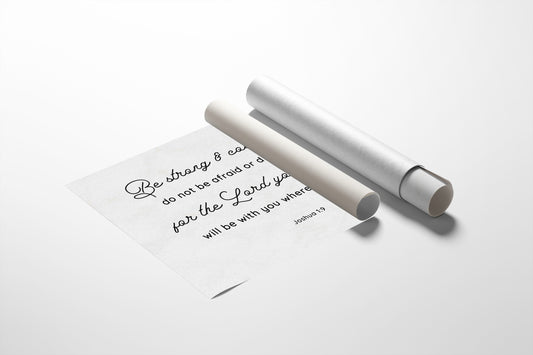 Be strong & co
do not be afraid or d
for the Lord yo
will be with you where
Joshua 1:9